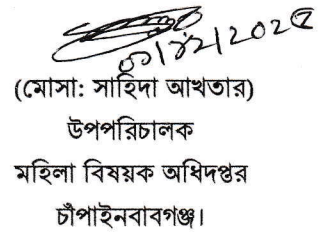 (মোসা: সাহিদা আখতার)
উপপরিচালক
মহিলা বিষয়ক অধিদপ্তর
চাঁপাইনবাবগঞ্জ।